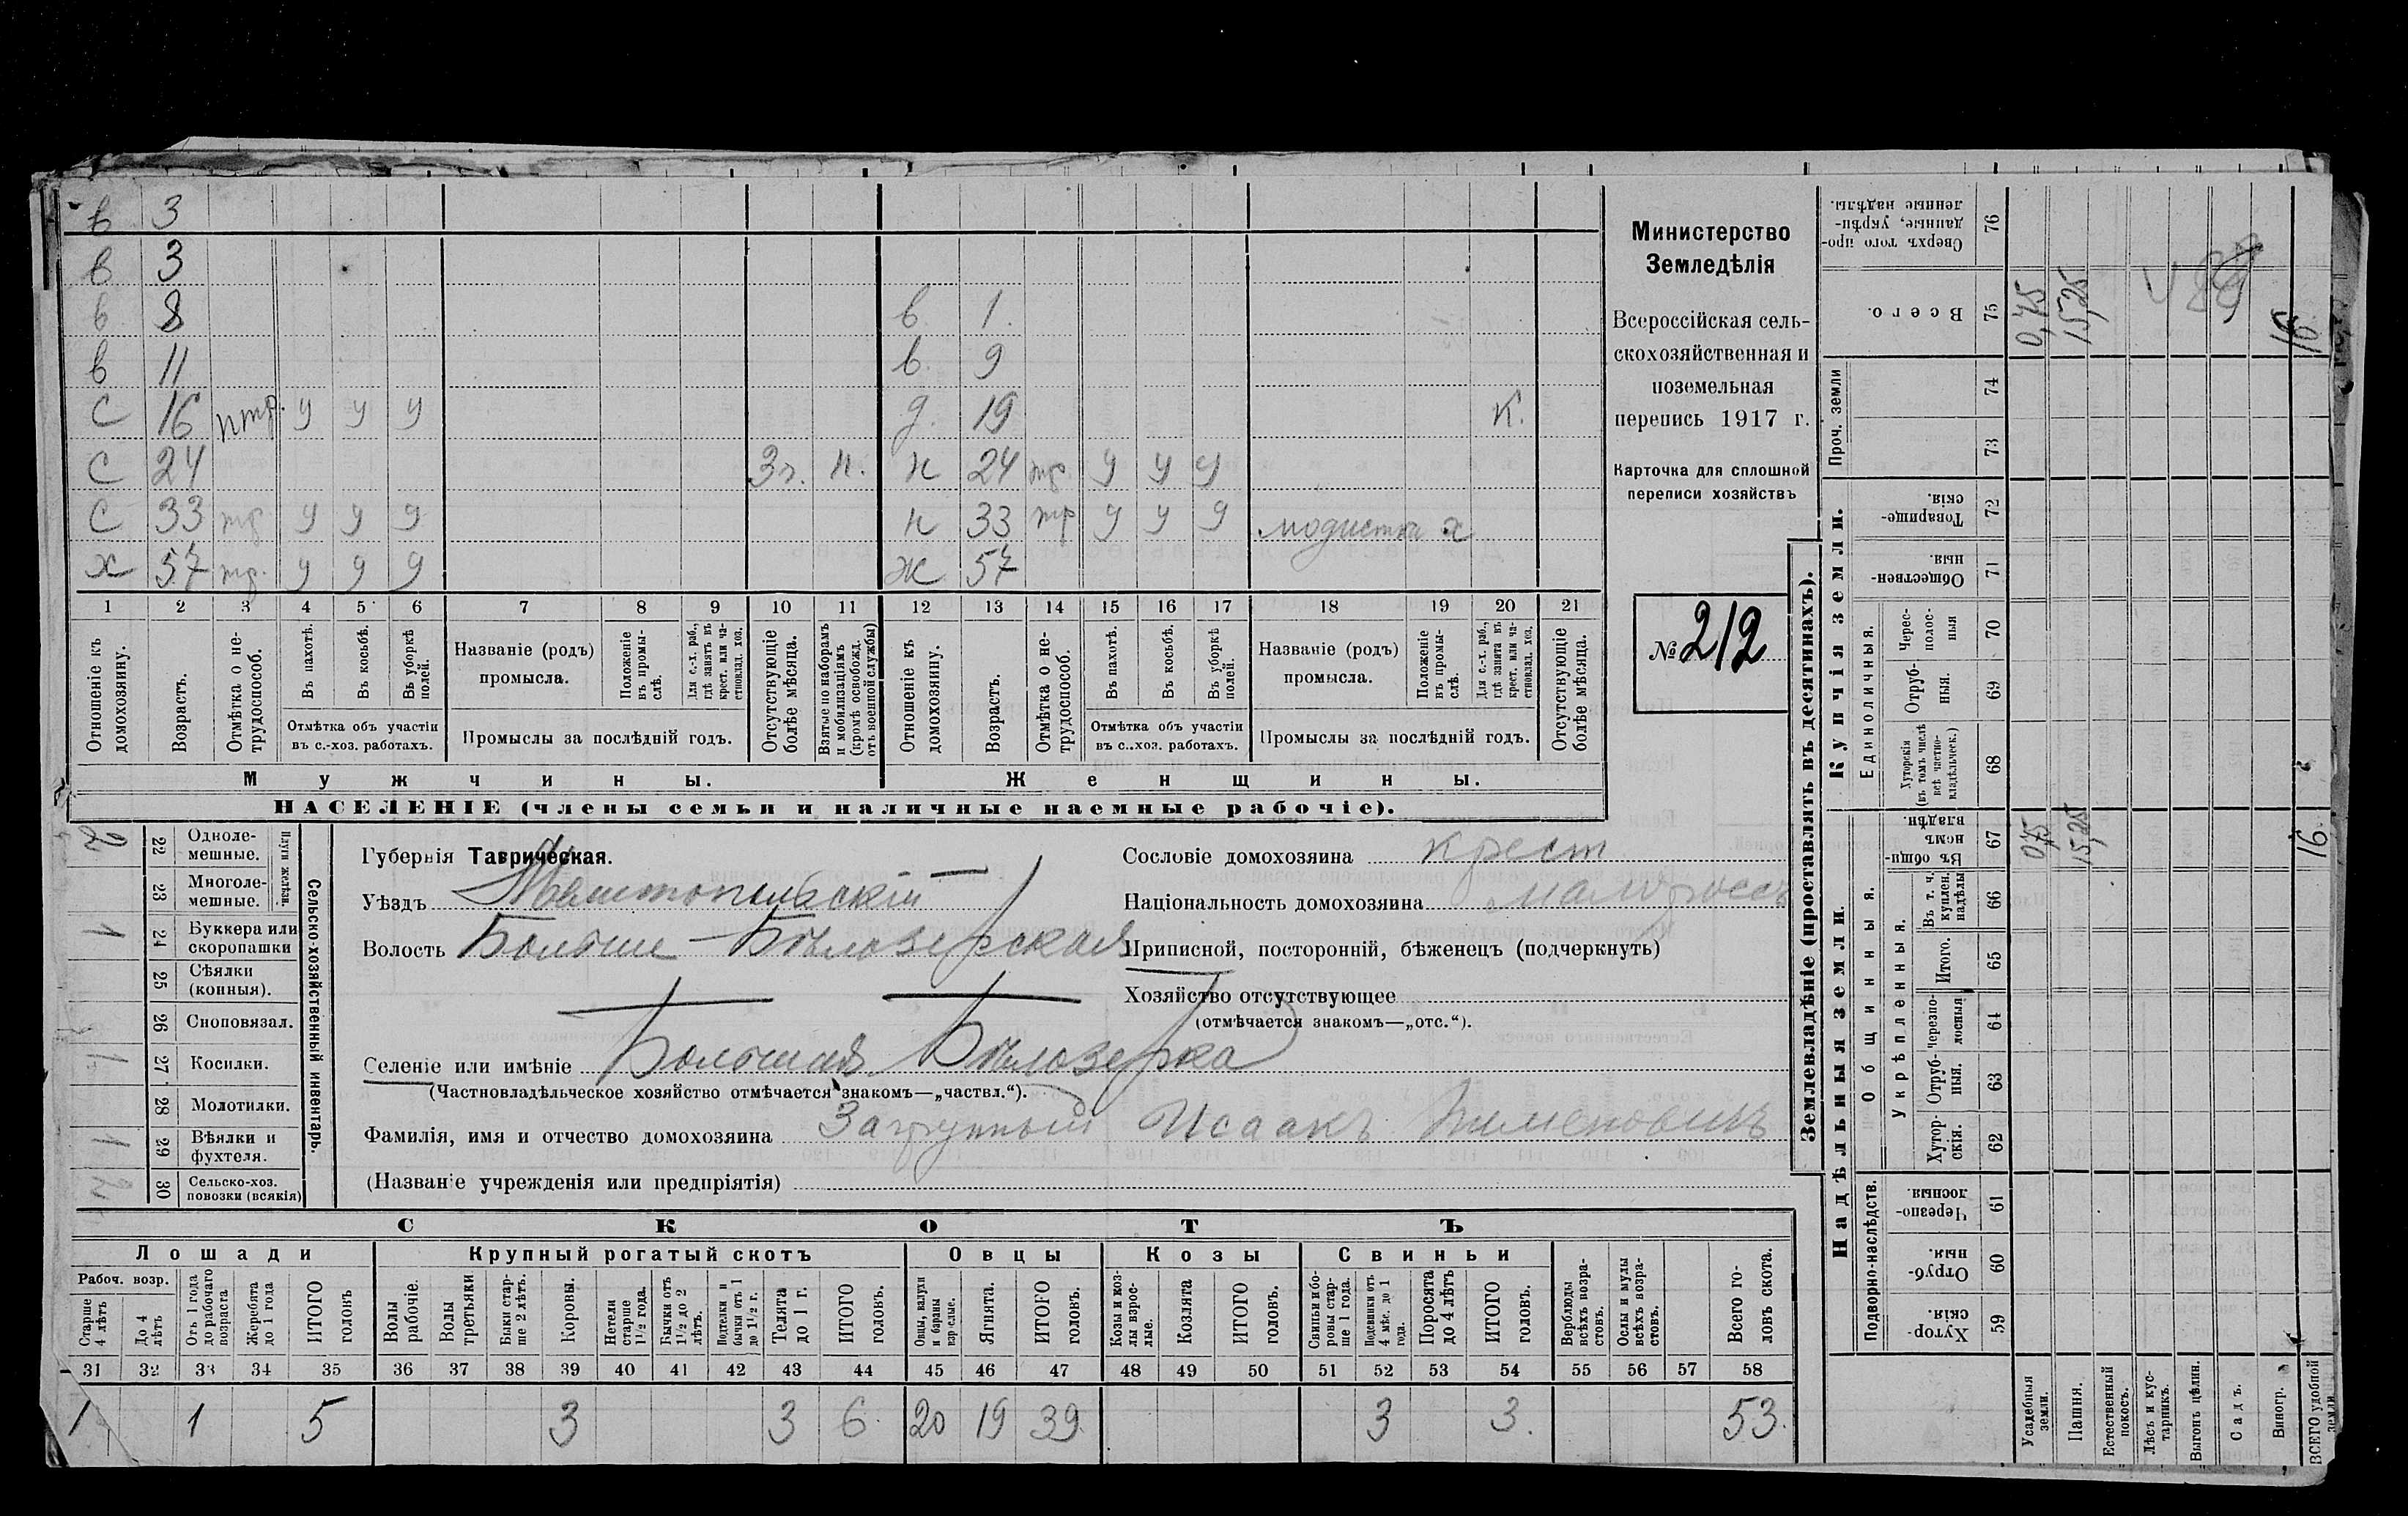 в 3
в 3
в 8 в. 1.
в 11 в. 9
С 16 птр. у у у д. 19 К.
С 24 3г. н. н 24 тр. у у у
С 33 тр у у у н 33 тр у у у модистка х
х 57 тр. у у у ж 57
1 2 3 4 5 6 7 8 9 10 11 12 13 14 15 16 17 18 19 20 21
Отношеніе къ домохозяину.
Возрастъ.
Отмѣтка о не-трудоспособ.
Въ пахотѣ.
Въ косьбѣ.
Въ уборкѣ полей.
Отмѣтка объ участіи
въ с.-хоз. работахъ.
Названіе (родъ)
промысла.
Положеніе въ промы-слѣ.
Для с.-х. раб., гдѣ занятъ въ крест. или ча-стновлад. хоз.
Промыслы за послѣдній годъ.
Отсутствующіе болѣе мѣсяца.
Взятые по наборамъ и мобилизаціямъ (кромѣ освобожд. отъ военной службы)
Отношеніе къ домохозяину.
Возрастъ.
Отмѣтка о не-трудоспособ.
Въ пахотѣ.
Въ косьбѣ.
Въ уборкѣ полей.
Отмѣтка объ участіи
въ с.-хоз. работахъ.
Названіе (родъ)
промысла.
Положеніе въ промы-слѣ.
Для с.-х. раб., гдѣ занята въ крест. или ча-стновлад. хоз.
Промыслы за послѣдній годъ.
Отсутствующіе болѣе мѣсяца.
Мужчины. Женщины.
НАСЕЛЕНІЕ (члены семьи и наличные наемные рабочіе).
Министерство
Земледѣлія
Всероссійская сель-
скохозяйственная и
поземельная
перепись 1917 г.
Карточка для сплошной
переписи хозяйствъ
№ 212
Сельско-хозяйственный инвентарь.
Плуги желѣзн.
2 22 Одноле-мешные.
23 Многоле-мешные.
1 24 Буккера или скоропашки
25 Сѣялки (конныя).
26 Сноповязал.
1 27 Косилки.
28 Молотилки.
1 29 Вѣялки и фухтеля.
2 30 Сельско-хоз. повозки (всякія)
Губернія Таврическая.
Уѣздъ Мелитопольскій
Волость Больше-Бѣлозерская
Селеніе или имѣніе Большая Бѣлозерка
(Частновладѣльческое хозяйство отмѣчается знакомъ—„частвл.“).
Фамилія, имя и отчество домохозяина Загрунный Исаакъ Пименовичъ
(Названіе учрежденія или предпріятія)
Сословіе домохозяина крест.
Національность домохозяина малороссъ
Приписной, посторонній, бѣженецъ (подчеркнуть)
Хозяйство отсутствующее
(отмѣчается знакомъ—„отс.“).
СКОТЪ
Лошади Крупный рогатый скотъ Овцы Козы Свиньи
Рабоч. возр.
Старше 4 лѣтъ
До 4 лѣтъ
Отъ 1 года до рабочаго возраста
Жеребята до 1 года
ИТОГО головъ
Волы рабочіе.
Волы третьяки
Быки стар-ше 2 лѣтъ.
Коровы.
Нетели старше 1½ года.
Бычки отъ 1½ до 2 лѣтъ.
Подтелки и бычки отъ 1 до 1½ г.
Телята до 1 г.
ИТОГО головъ.
Овцы, валухи и бараны взрослые.
Ягнята.
ИТОГО головъ.
Козы и коз-лы взрос-лые.
Козлята
ИТОГО головъ.
Свиньи и бо-ровы стар-ше 1 года.
Подсвинки отъ 4 мѣс. до 1 года.
Поросята до 4 лѣтъ
ИТОГО головъ.
Верблюды всѣхъ возра-стовъ.
Ослы и мулы всѣхъ возра-стовъ.
Всего го-ловъ скота.
31 32 33 34 35 36 37 38 39 40 41 42 43 44 45 46 47 48 49 50 51 52 53 54 55 56 57 58
1 1 5 3 3 6 20 19 39 3 3. 53.
Землевладѣніе (проставлять въ десятинахъ).
Надѣльныя земли. Купчія земли.
Подворно-наслѣдств.
Общинныя.
Укрѣпленныя.
Единоличныя.
Проч. земли
Хутор-скія. 59
Отруб-ныя 60
Черезпо-лосныя. 61
Хутор-скія. 62
Отруб-ныя. 63
Черезпо-лосныя 64
Итого. 65
Въ т. ч. куплен. надѣлы 66
Въ общи-номъ владѣн. 67
Хуторскія (въ томъ числѣ всѣ частно-владѣльческ.) 68
Отруб-ныя. 69
Черес-полос-ныя 70
Обществен-ныя 71
Товарище-скія. 72
73
74
Всего. 75
Сверхъ того про-данные, укрѣп-ленные надѣлы. 76
Усадебныя земли. 0,75 0,75
Пашня. 15,25 15,25
Естественный покосъ.
Лѣсъ и кус-тарникъ.
Выгонъ цѣлин.
Садъ.
Виногр.
ВСЕГО удобной земли 16 16